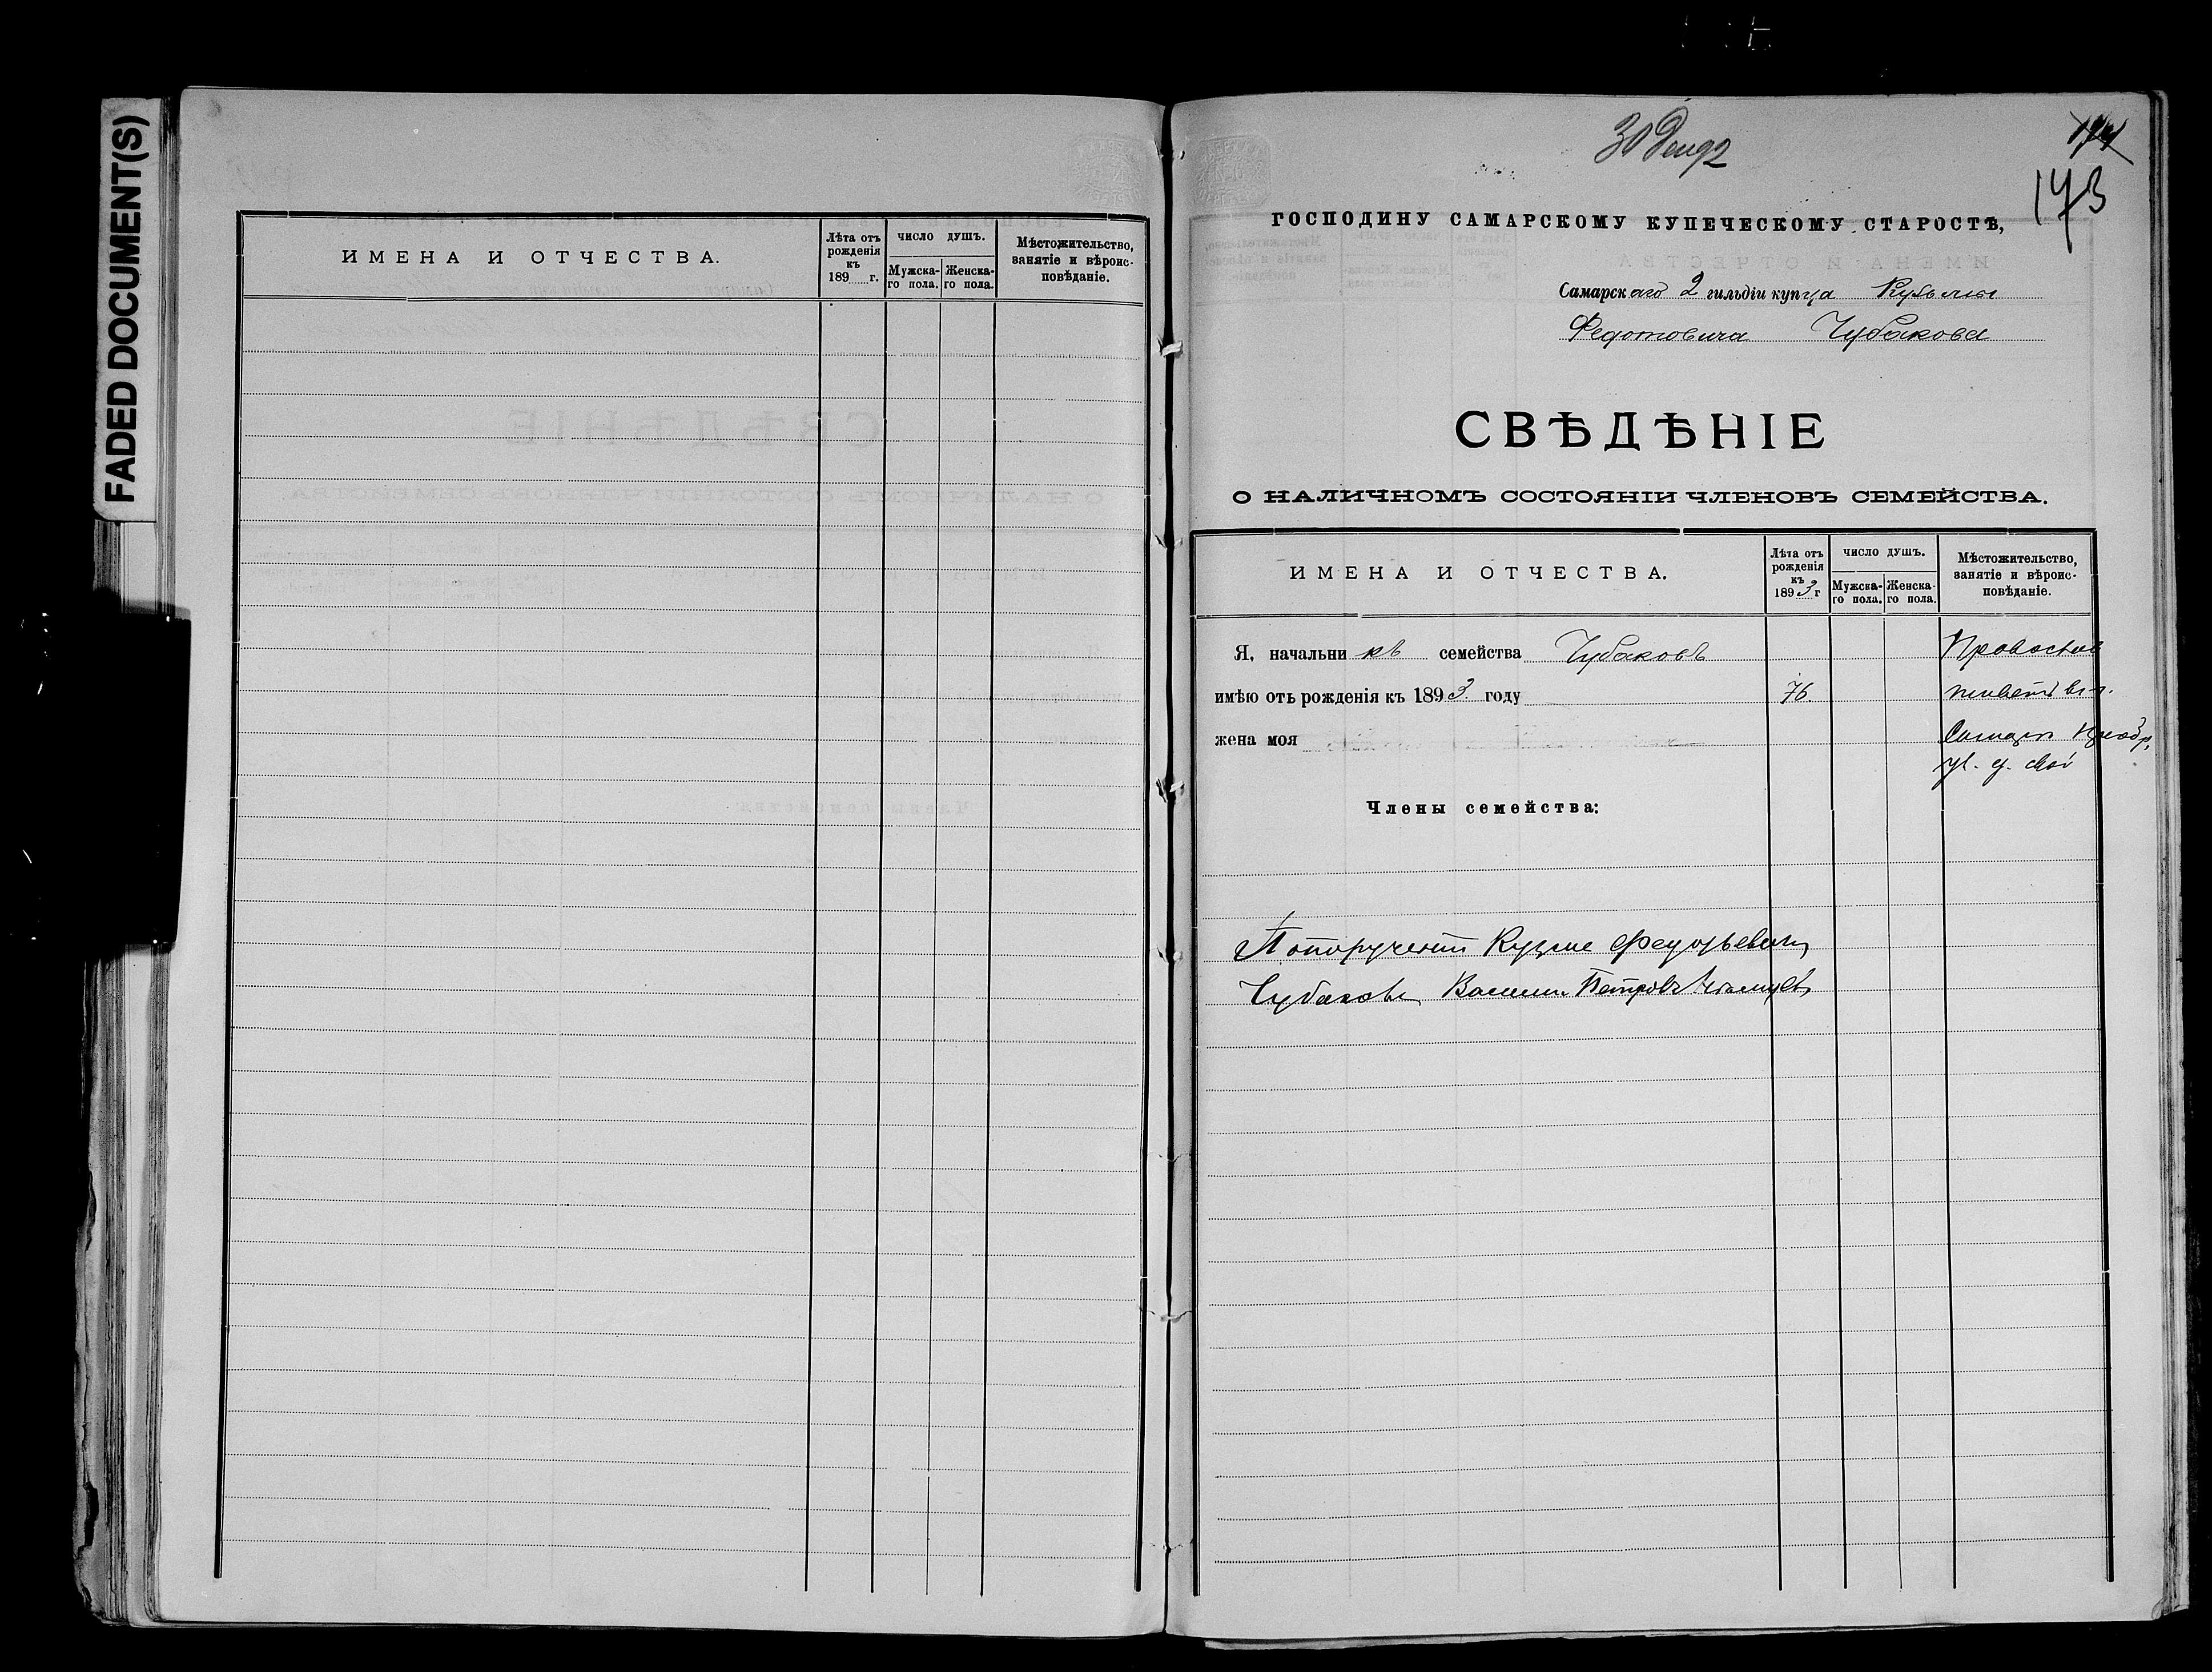 FADED DOCUMENT(S)
ИМЕНА И ОТЧЕСТВА.
Лѣта отъ
рожденія
къ
189 г.
ЧИСЛО ДУШЪ.
Мужска-
го пола.
Женска-
го пола.
Мѣстожительство,
занятіе и вѣроис-
повѣданіе.
30 Дек 92
173
ГОСПОДИНУ САМАРСКОМУ КУПЕЧЕСКОМУ СТАРОСТѢ,
Самарскаго 2 гильдіи купца Кузьмы
Федотовича Чубакова
СВѢДѢНІЕ
О НАЛИЧНОМЪ СОСТОЯНІИ ЧЛЕНОВЪ СЕМЕЙСТВА.
ИМЕНА И ОТЧЕСТВА.
Лѣта отъ
рожденія
къ
1893 г
ЧИСЛО ДУШЪ.
Мужска-
го пола.
Женска-
го пола.
Мѣстожительство,
занятіе и вѣроис-
повѣданіе.
Я, начальникъ семейства Чубаковъ
имѣю отъ рожденія къ 1893 году 76.
живетъ въ г.
жена моя
ул. д. свой
Члены семейства:
Кузме
Чубакова Петровъ